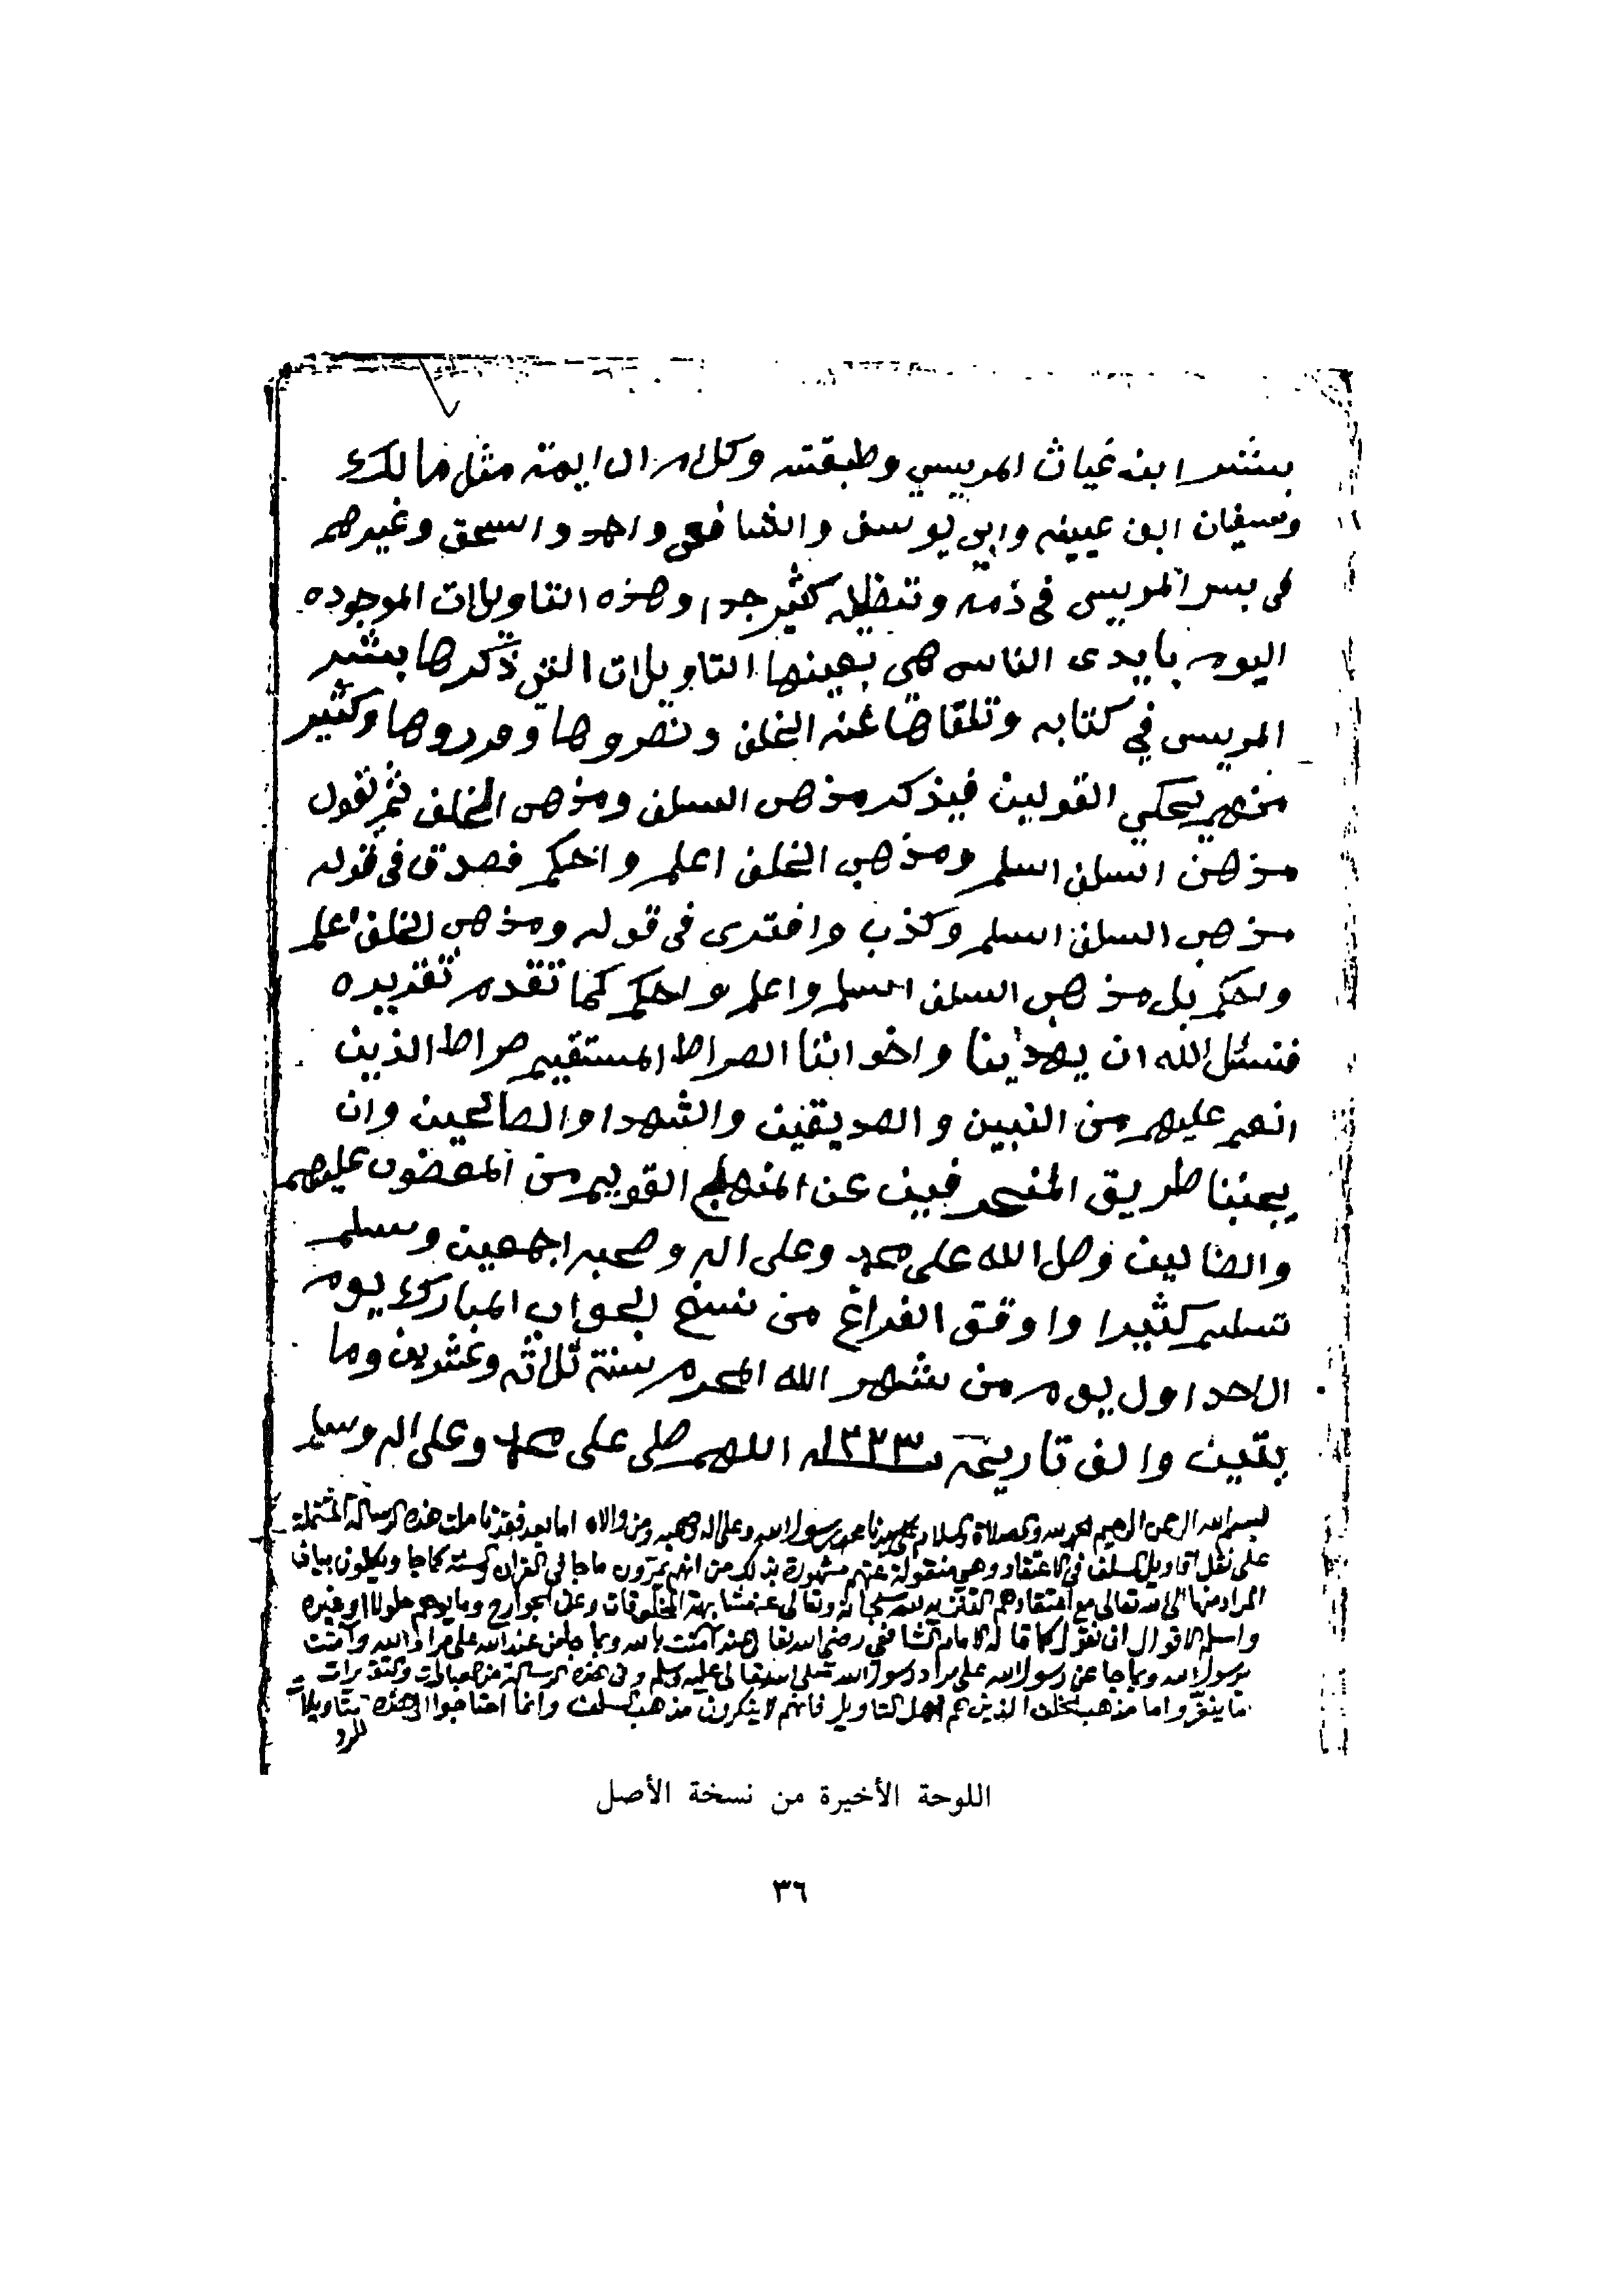 بشر ابن غياث المريسي وطبقته وكلام الايمة مثل مالك
وسفيان ابن عيينه وابي يوسف والشافعي واحمد واسحق وغيرهم
في بسر المريسي في ذمه وتضليله كثير جدا وهذه التاويلات الموجوده
اليوم بايدى الناس هي بعينها التاويلات التي ذكرها بشر
المريسى في كتابه وتلقاها عنه الخلف ونصروها وقرروها وكثير
منهم يحكي القولين فيذكر مذهب السلف ومذهب الخلف ثم تقول
مذهب السلف اسلم ومذهب الخلف اعلم واحكم فصدق في قوله
مذهب السلف اسلم وكذب وافترى في قوله ومذهب الخلف اعلم
واحكم بل مذهب السلف اسلم واعلم واحكم كما تقدم تقريره
فنسئل الله ان يهدينا واخواننا الصراط المستقيم صراط الذين
انعم عليهم من النبين والصديقين والشهدا والصالحين وان
يجنبنا طريق المنحرفين عن المنهاج القويم من المغضوب عليهم
والضالين وصل الله على محمد وعلى اله وصحبه اجمعين وسلم
تسليم كثيرا واوفق الفراغ من نسخ الجواب المبارك يوم
الاحد اول يوم من شهر الله المحرم سنة ثلاثه وعشرين وما
بتين والف تاريخه سنه ١٢٢٣ اللهم صلى على محمد وعلى اله وسلم
بسم الله الرحمن الرحيم الحمد لله والصلاة والسلام على سيدنا محمد رسول الله وعلى اله وصحبه ومن والاه اما بعد فقد تاملت هذه الرسالة المشتملة
على نقل اقاويل السلف في الاعتقاد وهي منقولة عنهم مشهورة بذلك من انهم يمرون ما جا في القران والسنة كما جا ويكلون بيان
المراد منها الى الله تعالى مع اعتقادهم التنزيه لله سبحانه وتعالى عن مشابهة المخلوقات وعن الجوارح وما يوهم حلولا او غيره
واسلم الاقوال ان نقول كما قاله الامام الشافعي رضي الله تعالى عنه آمنت بالله وبما جا من عند الله على مراد الله وآمنت
برسول الله وبما جا عن رسول الله على مراد رسول الله صلى الله تعالى عليه وسلم وفى هذه الرسالة من العبارات
واما مذهب الخلف الذين هم اهل التاويل فانهم لا ينكرون مذهب السلف وانما احتاجوا الى هذه
للرد
اللوحة الأخيرة من نسخة الأصل
٣٦